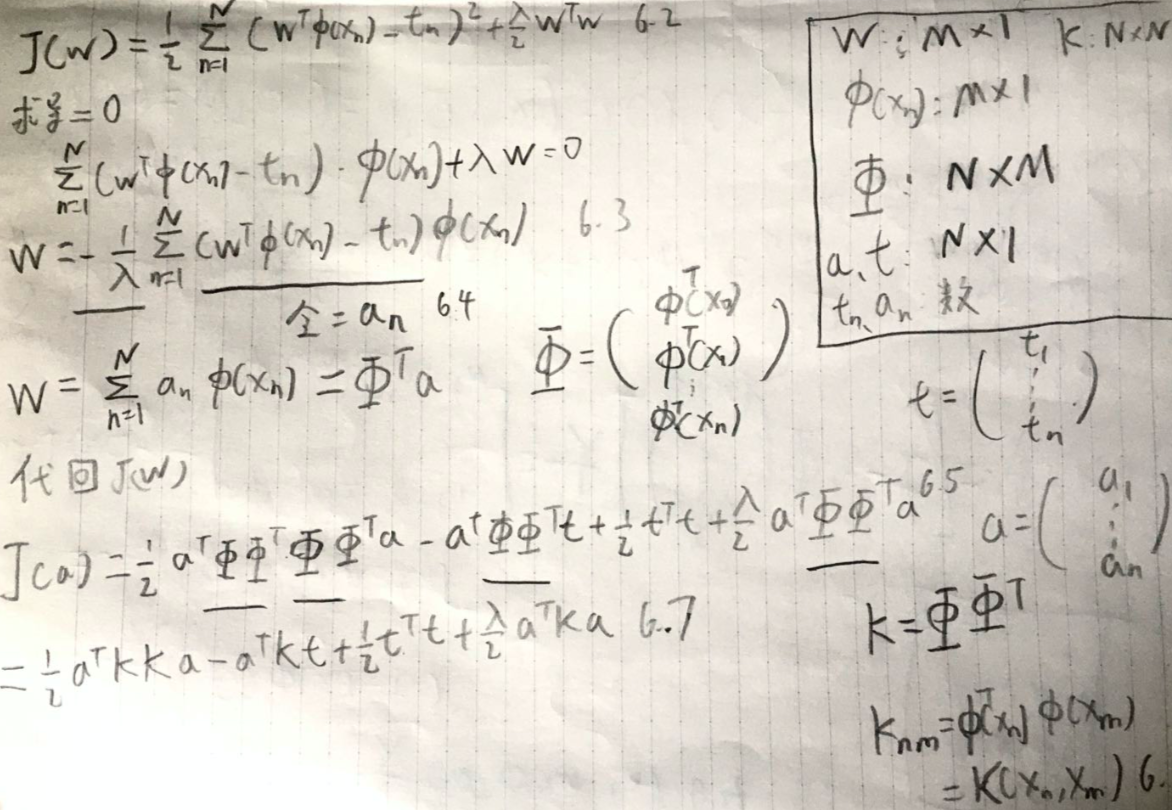 J(w) = 1/2 Σ_{n=1}^{N} (w^T φ(x_n) - t_n)^2 + λ/2 w^T w 6.2
求导 = 0
Σ_{n=1}^{N} (w^T φ(x_n) - t_n) · φ(x_n) + λ w = 0
w = - 1/λ Σ_{n=1}^{N} (w^T φ(x_n) - t_n) φ(x_n) 6.3
令 = a_n 6.4
w = Σ_{n=1}^{N} a_n φ(x_n) = Φ^T a
Φ = ( φ^T(x_1)
φ^T(x_2)
⋮
φ^T(x_n) )
代回 J(w)
J(a) = 1/2 a^T Φ Φ^T Φ Φ^T a - a^T Φ Φ^T t + 1/2 t^T t + λ/2 a^T Φ Φ^T a 6.5
= 1/2 a^T k k a - a^T k t + 1/2 t^T t + λ/2 a^T k a 6.7
w : M×1 k : N×N
φ(x_n) : M×1
Φ : N×M
a、t : N×1
t_n、a_n 数
t = ( t_1
⋮
t_n )
a = ( a_1
⋮
a_n )
k = Φ Φ^T
k_{nm} = φ^T(x_n) φ(x_m)
= k(x_n, x_m) 6.